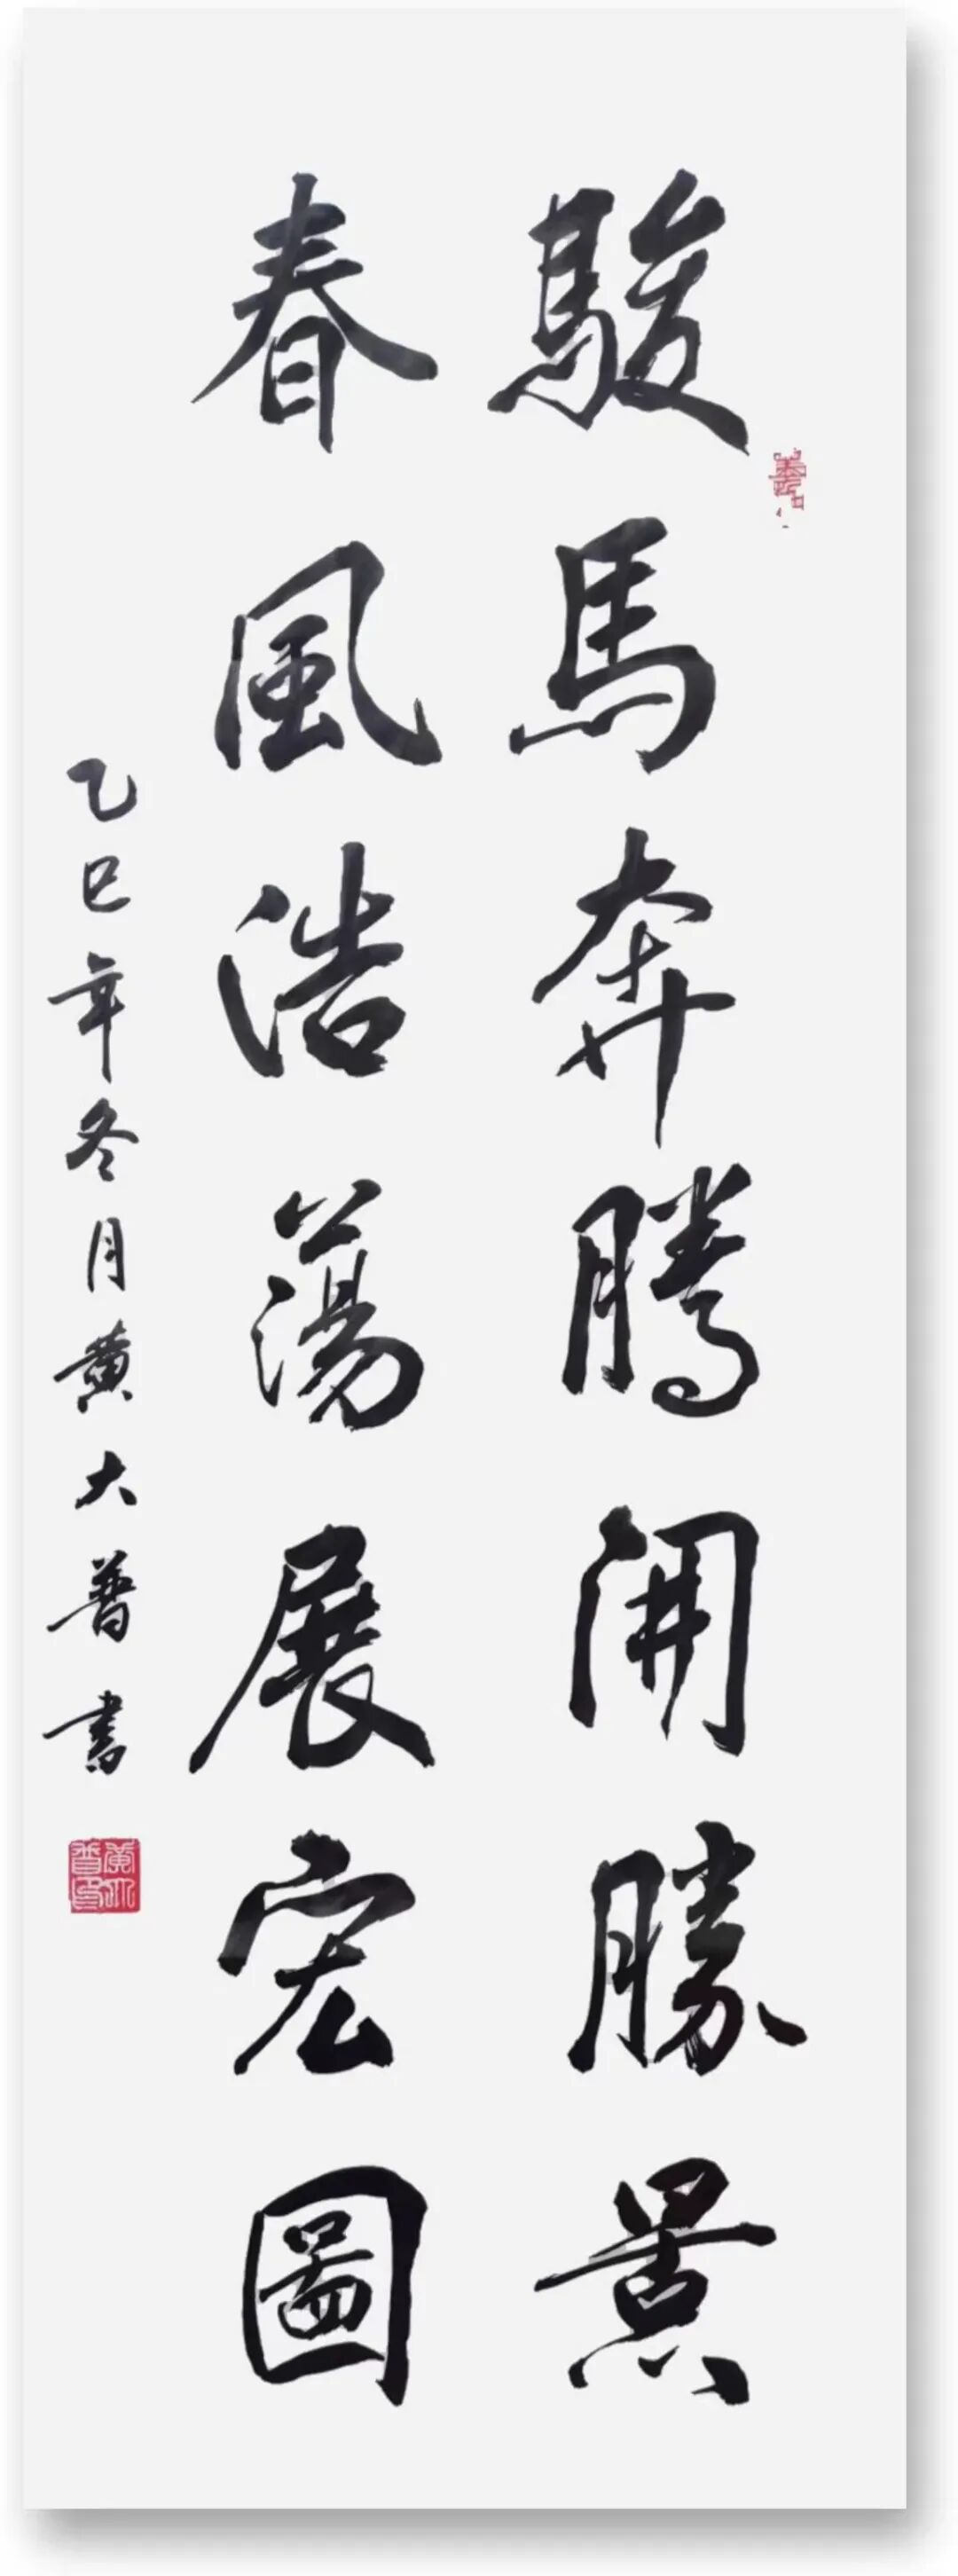 駿馬奔騰開勝景
春風浩蕩展宏圖
乙巳年冬月黄大普書
黄大普印